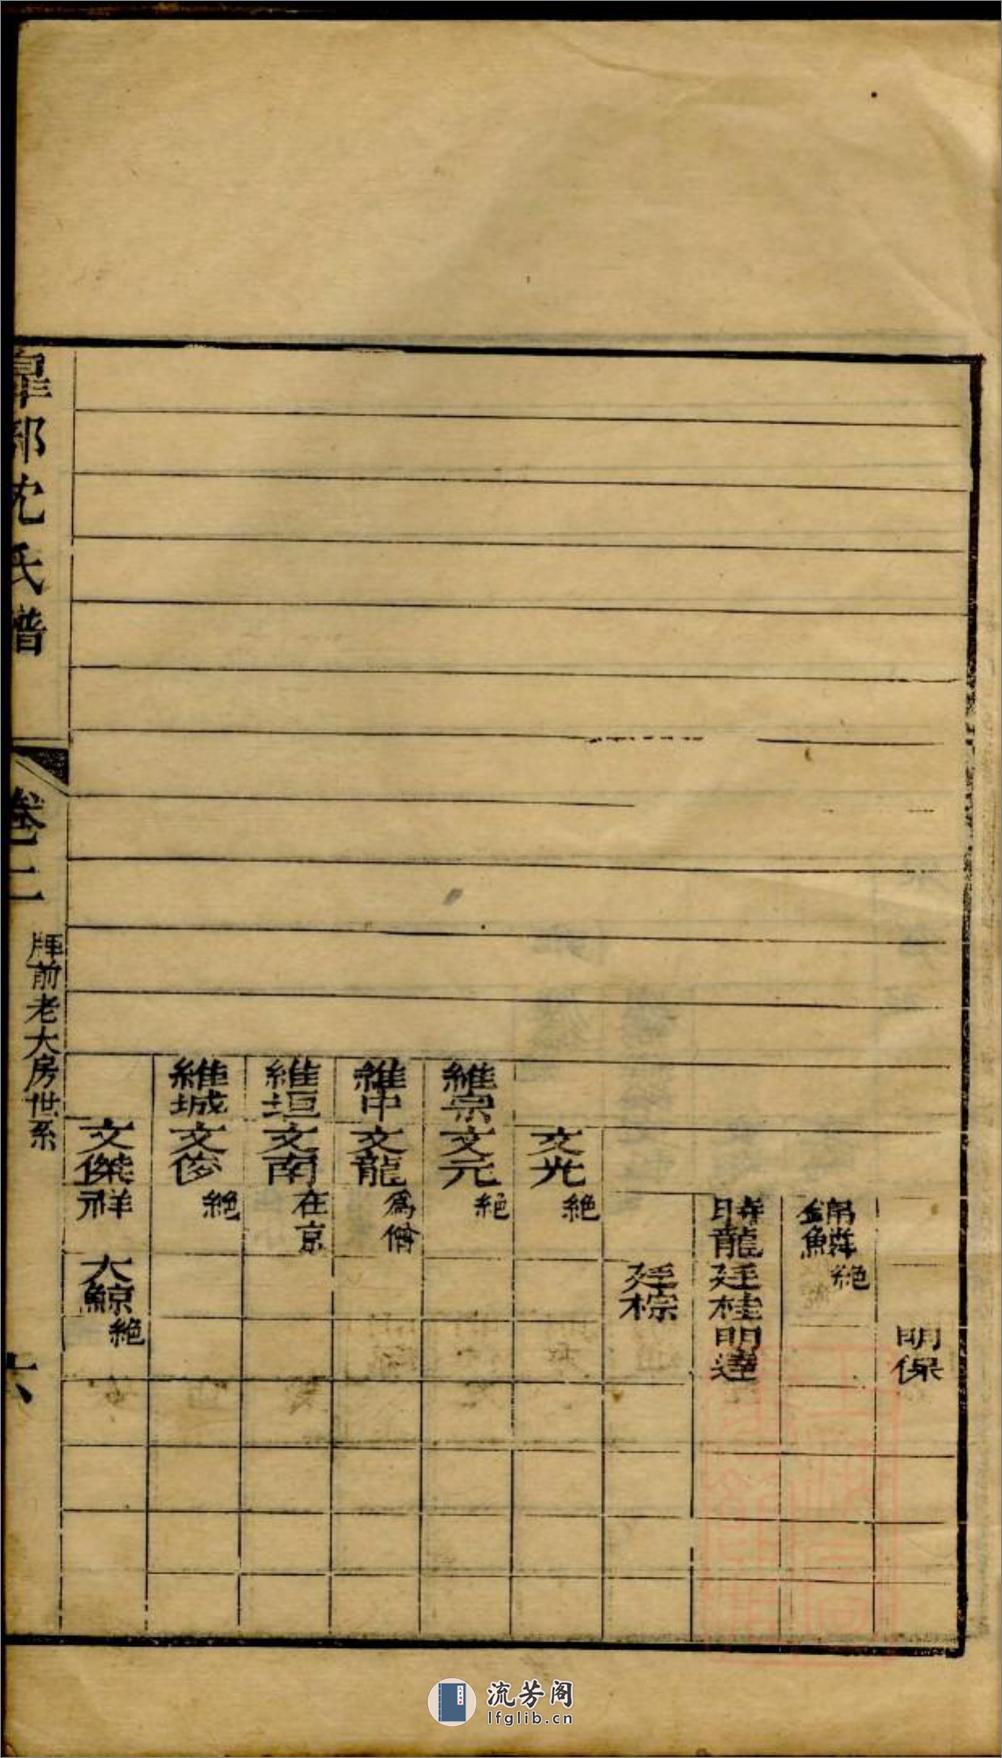 明保
錦鱗絶
時龍廷桂明達
廷棕
文光絶
維宗文元絶
維中文龍爲僧
維垣文南在京
維城文俊絶
文傑祥大鯨絶
皐部沈氏譜
卷二
牌前老大房世系
六
流芳阁
lfglib.cn